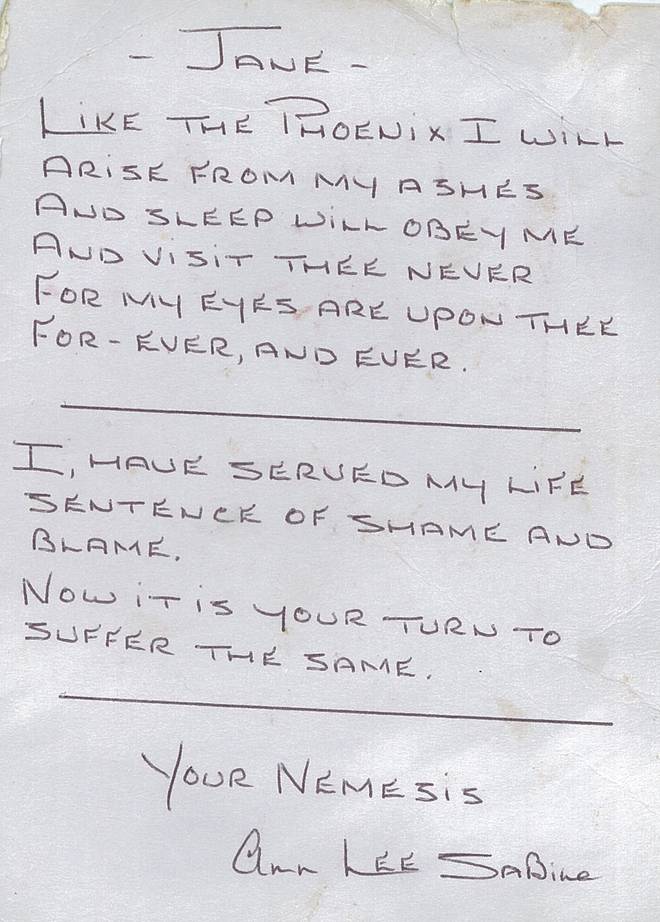 - JANE -
LIKE THE PHOENIX I WILL
ARISE FROM MY ASHES
AND SLEEP WILL OBEY ME
AND VISIT THEE NEVER
FOR MY EYES ARE UPON THEE
FOR-EVER, AND EVER.
I, HAVE SERVED MY LIFE
SENTENCE OF SHAME AND
BLAME.
NOW IT IS YOUR TURN TO
SUFFER THE SAME.
YOUR NEMESIS
Ann LEE SABine